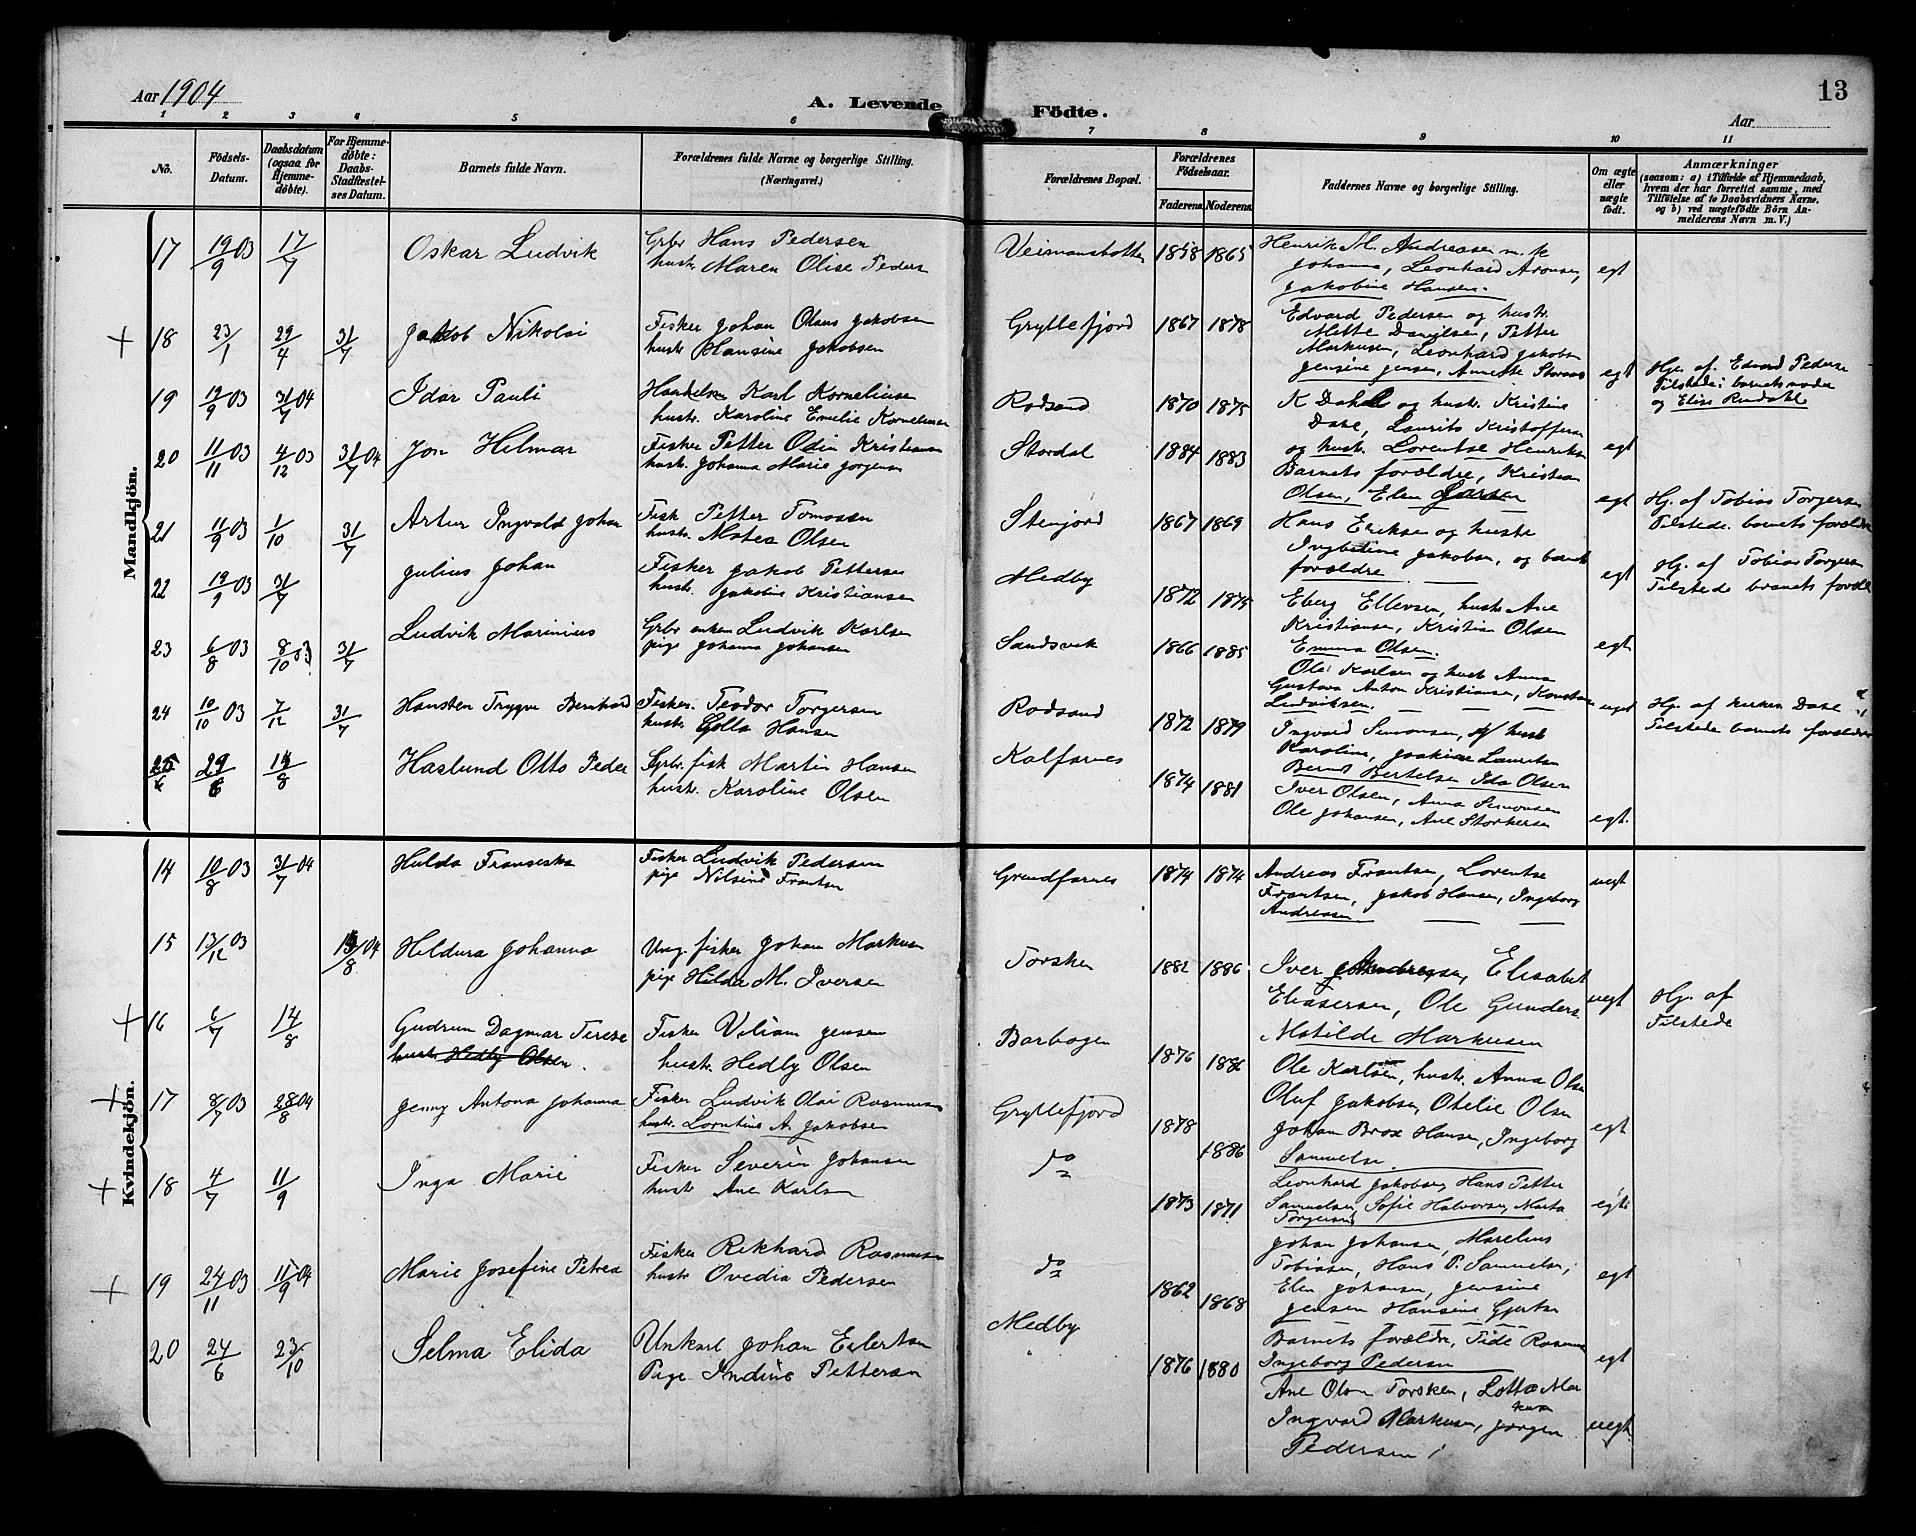 Aar 1904
A. Levende Födte.
13
Aar
1 2 3 4 5 6 7 8 9 10 11
No.
Födsels-Datum.
Daabsdatum (ogsaa for Hjemmedöbte).
For Hjemmedöbte: Daabs-Stadfæstelses Datum.
Barnets fulde Navn.
Forældrenes fulde Navne og borgerlige Stilling.
(Næringsvei.)
Forældrenes Bopæl.
Forældrenes Födselsaar.
Faderens. Moderens.
Faddernes Navne og borgerlige Stilling.
Om ægte eller uægte födt.
Anmærkninger
(saasom: a) i Tilfælde af Hjemmedaab,
hvem der har forrettet samme, med
Tilföielse af to Daabsvidners Navne,
og b) ved uægtefödte Börn Anmelderens Navn m. V.)
Mandkjön.
17 19/9 03 17/7 Oskar Ludvik
Grbr Hans Pedersen
hustr. Maren Olise Peders
1858 1865
Henrik M. Andreasen m. k
Johanna, Leonhard Aronsen,
Jakobine Hansen.
egt
+ 18 23/1 29/4 31/7 Jakob Nikolai
Fisker Johan Olaus Jakobsen
hustr Hansine Jakobsen
Gryllefjord 1867 1878
Edvard Pedersen og hustr.
Mette Danilsen, Petter
Markusen, Leonhard Jakobs
Jensine Jensen, Annette
egt
Hje. af. Edvard Peders
Tilstede: barnets moder
og Elise
19 19/9 03 31/7 04 Idar Pauli
Karl Korneliusen
hustr. Karoline Emelie Korneliusen
Rodsand 1870 1875
K Dahl og hustr. Kristine
Dase, Laurits Kristoffersen
og hustr. Lorentse Henriks
egt
20 11/11 03 4/12 03 31/7 04 Jon Helmar
Fisker Petter Odin Kristiansen
hustr. Johanna Marie Jorgensen
Stordal 1884 1883
Barnets forældre, Kristian
Olsen, Elen Larsen
egt
Hj. af Tobias Torgersen
Tilstede. barnets forældre
21 11/9 03 1/10 31/7 Artur Ingvald Johan
Fisk Petter Tomassen
hustr. Motea Olsen
Stenjord 1867 1869
Hans Eriksen og hustr
Ingbetine Jakobsen, og barnets
forældre
egt
Hj. af Tobias Torgersen
Tilstede barnets foræld
22 19/9 03 31/7 Julius Johan
Fisker Jakob Petterse
hustr. Jakobine Kristiansen
Medby 1872 1875
Eberg Ellevsen, hustr Ane
Kristiansen, Kristian Olsen
Emma Olsen.
egt
23 6/8 03 8/10 03 31/7 Ludvik Marinius
Grbr enken Ludvik Karlsen
pige Johanna Johansen
Sandsvik 1866 1885
Ole Karlsen og hustr Anna
Gustava Anton Kristiansen, Konstan
Ludviksen.
uegt
24 10/10 03 7/12 31/7 Hansten Trygve Bernhard
Fisker. Teodor Torgersen
hustr. Golla Hansen
Rodsand 1872 1879
Ingvard Simonsen, og hustr
Karoline, Joakim Lauritsen
Bernt Bertelsen Ida Olsen
Hj. af kirken Dase
Tilstede barnets forældre
25 29/6 14/8 Haslund Otto Peder
Grbr. fisk Martin Hansen
hustr. Karoline Olsen
Kalfarnes 1874 1881
Iver Olsen, Anna Simonsen
Ole Johansen, Ane Storkersen
egt.
Kvindekjön.
14 10/8 03 31/7 04 Hulda Fransiska
Fisker Ludvik Pedersen
pige Nilsine Frantsen
Grundfarnes 1874 1874
Andreas Frantsen, Lorentse
Frantsen, Jakob Hansen, Ingeborg
Andreasen
uegt
15 13/12 03 14/8 04 Hildura Johanna
Ung. fisker Johan Markusen
pige Hilda M. Iversen
Torsken 1882 1886
Iver Andreasen, Elisabet
Eliasersen, Ole Gunders.
Matilde Markusen
uegt
Hj. af
Tilstede
+ 16 6/7 14/8 Gudrun Dagmar Terese
hustr. Hedly Olsen.
Fisker Viliam Jensen
hustr. Hedly Olsen
Barbogen 1876 1886
Ole Karlsen, hustr. Anna Olsen
Oluf Jakobsen, Otelie Olsen
+ 17 8/7 03 28/8 04 Jenny Antona Johanna
Fisker Ludvik Olai Rasmussen
hustr. Lorntine A. Jakobsen
Gryllefjord 1878 1886
Johan Brox Hansen, Ingeborg
Samuelse
egt
+ 18 4/7 11/9 Inga Marie
Fisker Severin Johansen
hustr Ane Karlsen
do 1873 1871
Leonhard Jakobsen, Hans Petter
Samuelsen, Sofie Halvorsen, Marta
Torgersen
egt
+ 19 24/11 03 11/9 04 Marie Josefine Petrea
Fisker Rikhard Rasmussen
hustr Ovedia Pedersen
do 1862 1868
Johan Johansen, Marelius
Tobiasen, Hans P. Samuelsen,
Elen Johansen, Jensine
Jensen Hansine Gjertse
egt
20 24/6 23/10 Selma Elida
Unkarl Johan Eilertsen
Pige Indine Pettersen
Medby 1876 1880
Barnets forældre, Tide Rasmus
Ingeborg Pedersen
egt
Ane Olsen Torsken, Lotta Mar
kusen
Ingvard Markusen, Jørgen
Pedersen
uegt.